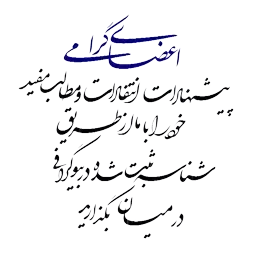 اعضای گرامی
پیشنهادات، انتقادات و مطالب مفید
خود را با ما از طریق
شناسه ثبت شده در بیوگرافی
در میان بگذارید